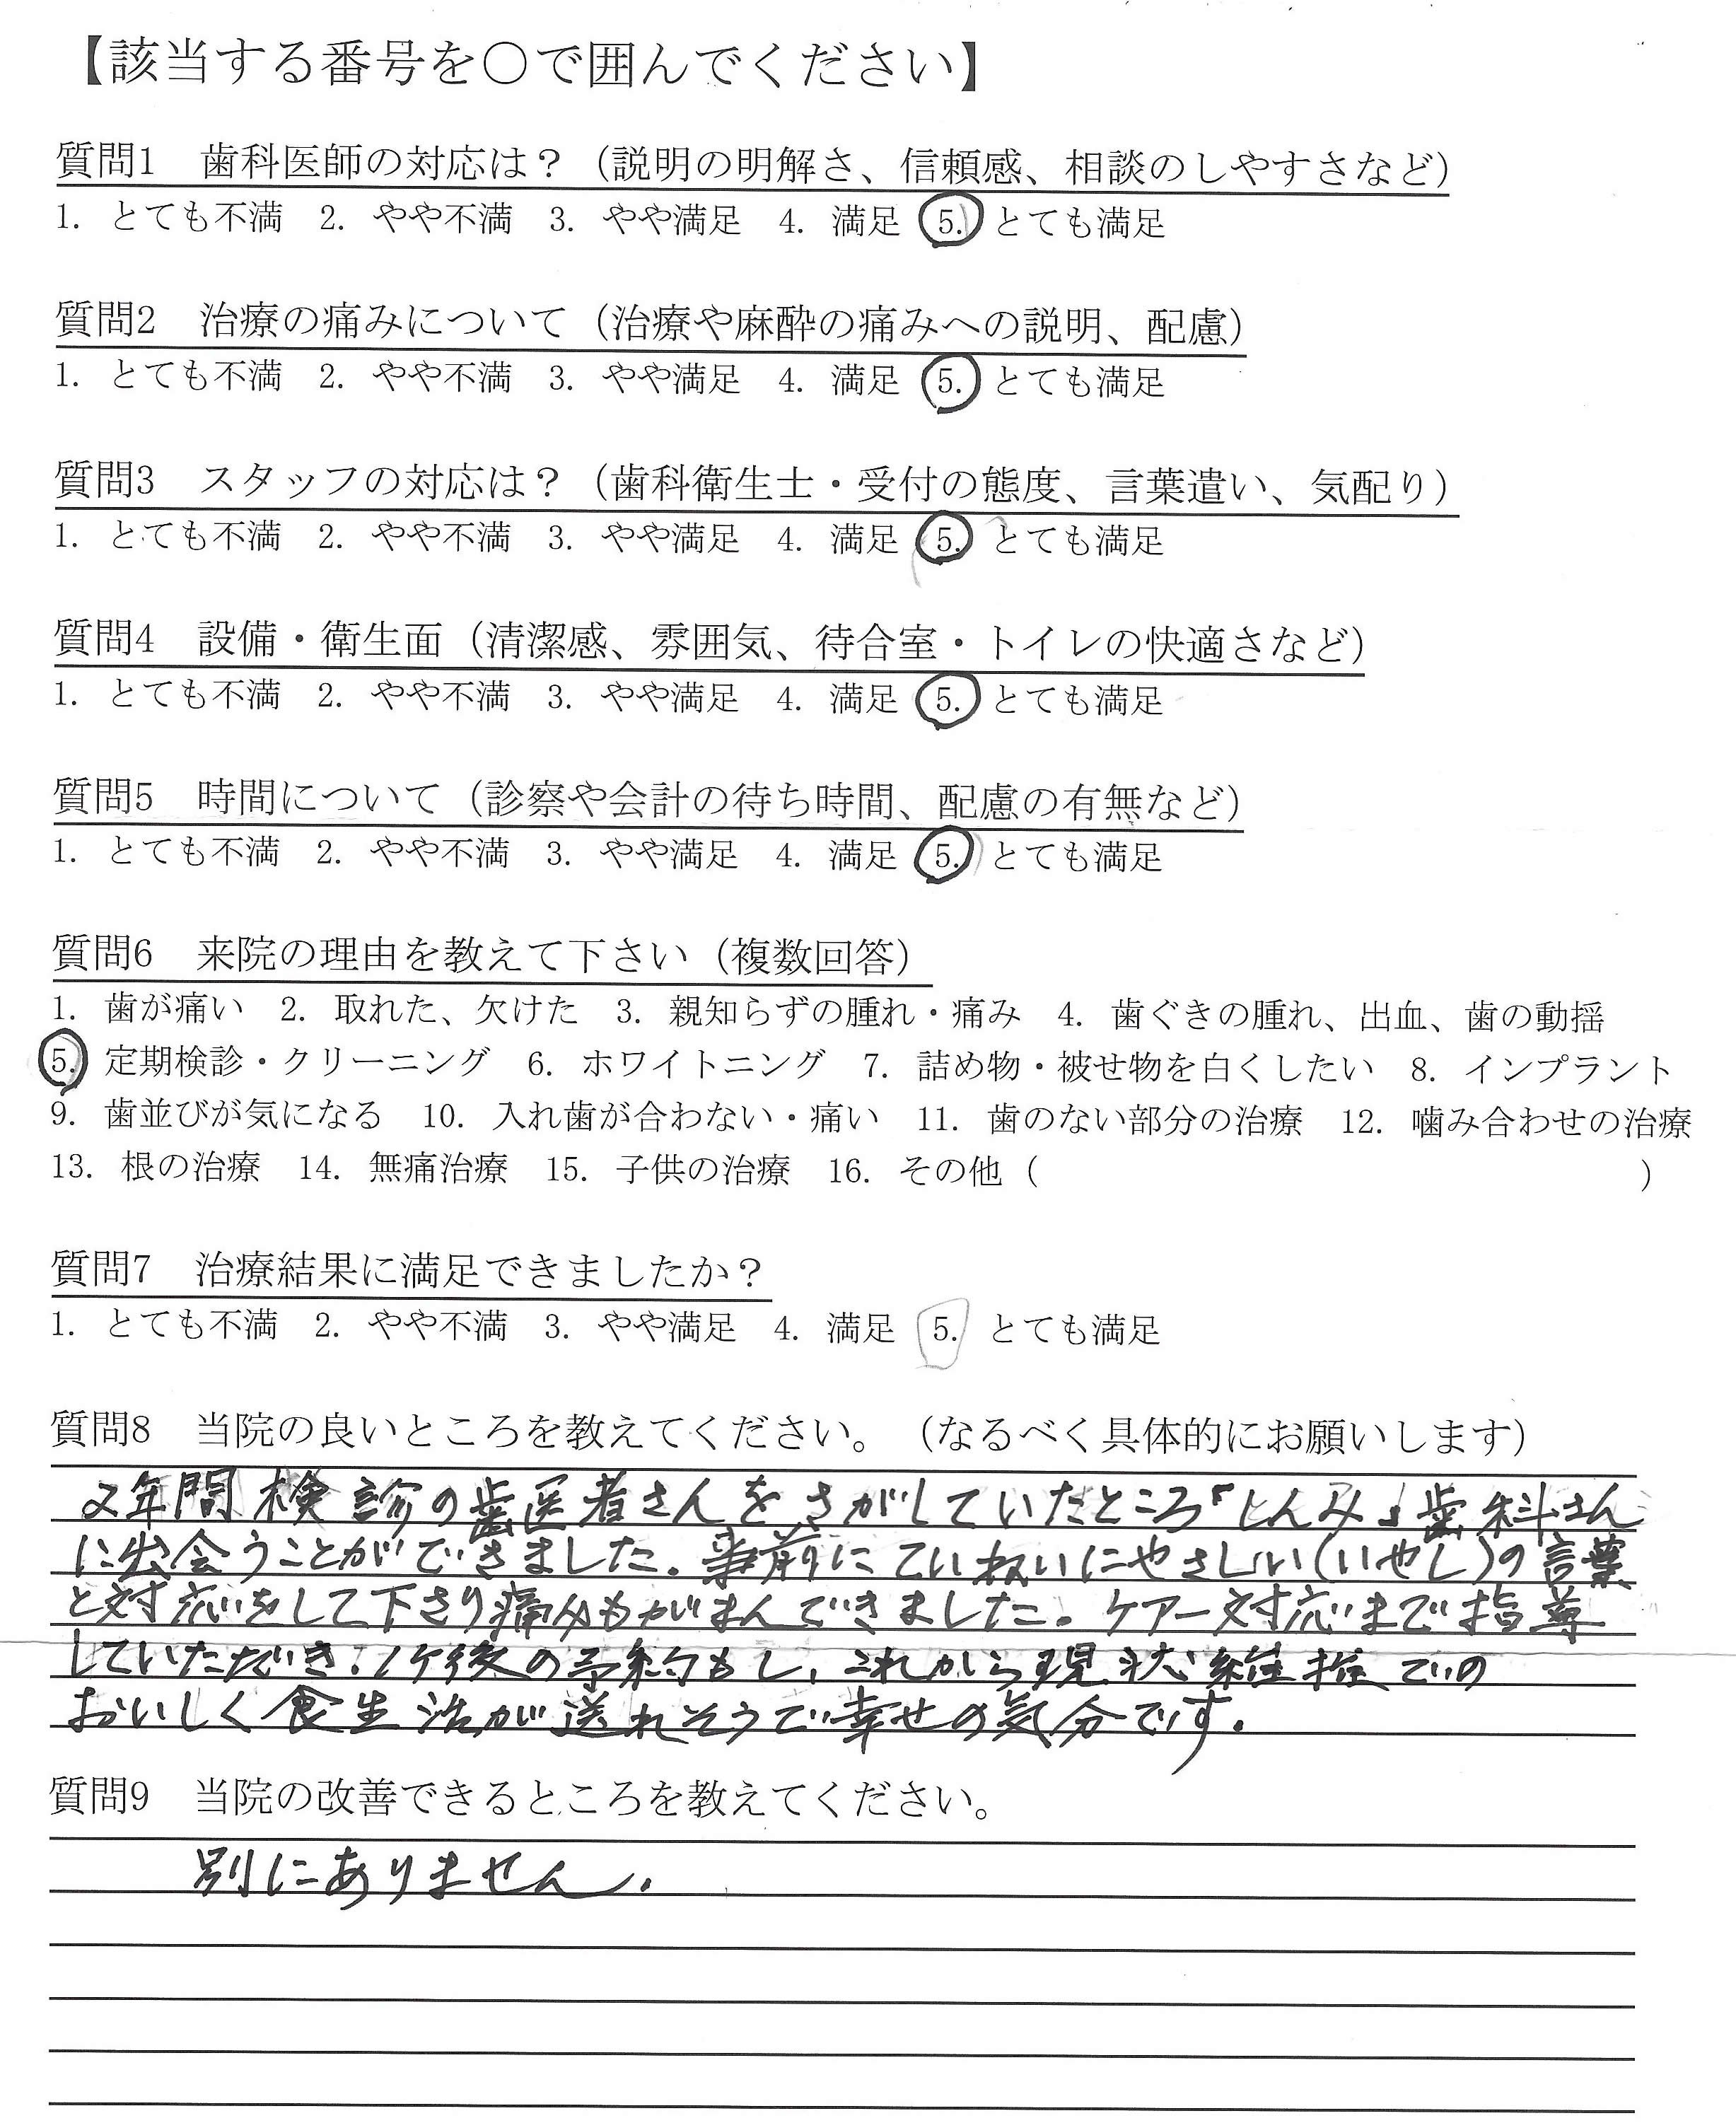 【該当する番号を〇で囲んでください】
質問1　歯科医師の対応は？（説明の明解さ、信頼感、相談のしやすさなど）
1. とても不満　2. やや不満　3. やや満足　4. 満足　5. とても満足
質問2　治療の痛みについて（治療や麻酔の痛みへの説明、配慮）
1. とても不満　2. やや不満　3. やや満足　4. 満足　5. とても満足
質問3　スタッフの対応は？（歯科衛生士・受付の態度、言葉遣い、気配り）
1. とても不満　2. やや不満　3. やや満足　4. 満足　5. とても満足
質問4　設備・衛生面（清潔感、雰囲気、待合室・トイレの快適さなど）
1. とても不満　2. やや不満　3. やや満足　4. 満足　5. とても満足
質問5　時間について（診察や会計の待ち時間、配慮の有無など）
1. とても不満　2. やや不満　3. やや満足　4. 満足　5. とても満足
質問6　来院の理由を教えて下さい（複数回答）
1. 歯が痛い　2. 取れた、欠けた　3. 親知らずの腫れ・痛み　4. 歯ぐきの腫れ、出血、歯の動揺
5. 定期検診・クリーニング　6. ホワイトニング　7. 詰め物・被せ物を白くしたい　8. インプラント
9. 歯並びが気になる　10. 入れ歯が合わない・痛い　11. 歯のない部分の治療　12. 噛み合わせの治療
13. 根の治療　14. 無痛治療　15. 子供の治療　16. その他（　　　　　　　　　　　）
質問7　治療結果に満足できましたか？
1. とても不満　2. やや不満　3. やや満足　4. 満足　5. とても満足
質問8　当院の良いところを教えてください。（なるべく具体的にお願いします）
2年間検診の歯医者さんをさがしていたところ「とんみ」歯科さん
に出会うことができました。事前にていねいにやさしい(いやし)の言葉
と対応をして下さり痛みもがまんできました。ケアー対応まで指導
していただき、1ケ後の予約もし、これから現状維持での
おいしく食生活が送れそうで幸せの気分です。
質問9　当院の改善できるところを教えてください。
別にありません。